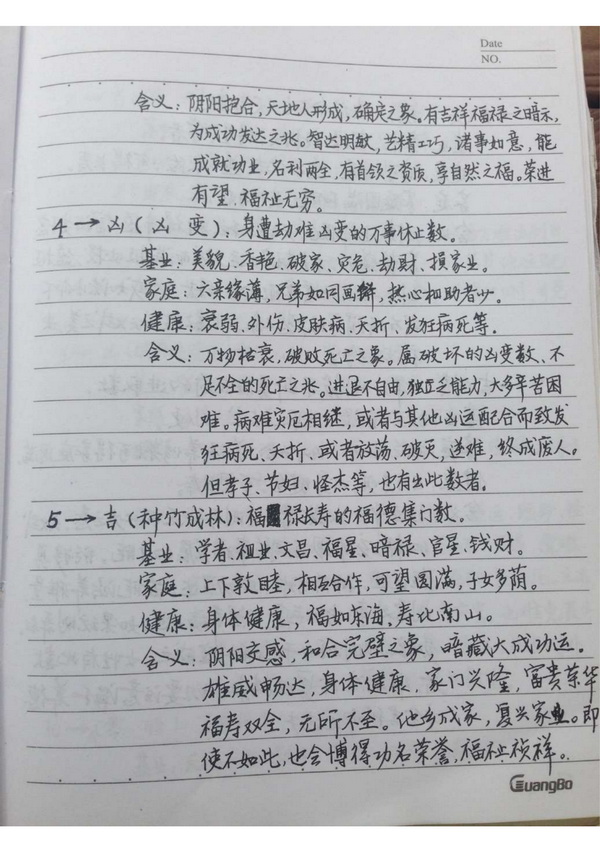 Date
NO.
含义：阴阳抱合，天地人形成，确定之象。有吉祥福禄之暗示，
为成功发达之兆。智达明敏，艺精工巧，诸事如意，能
成就功业，名利两全，有首领之资质，享自然之福。荣进
有望、福祉无穷。
4→凶（凶 变）：身遭劫难凶变的万事休止数。
基业：美貌、香艳、破家、灾危、劫财、损家业。
家庭：六亲缘薄，兄弟如同画饼，热心相助者少。
健康：衰弱、外伤、皮肤病、夭折、发狂病死等。
含义：万物枯衰，破败死亡之象。属破坏的凶变数、不
足不全的死亡之兆。进退不自由，独立乏能力，大多辛苦困
难。病难灾厄相继，或者与其他凶运配合而致发
狂病死、夭折、或者放荡、破灭，逆难，终成废人。
但孝子、节妇、怪杰等，也有出此数者。
5→吉（种竹成林）：福禄长寿的福德集门数。
基业：学者、祖业、文昌、福星、暗禄、官星、钱财。
家庭：上下敦睦，相互合作，可望圆满，子女多荫。
健康：身体健康，福如东海、寿比南山。
含义：阴阳交感，和合完壁之象，暗藏大成功运。
雄威畅达，身体健康，家门兴隆，富贵荣华
福寿双全，无所不至。他乡成家，复兴家业。即
使不如此，也会博得功名荣誉，福祉祯祥。
GuangBo